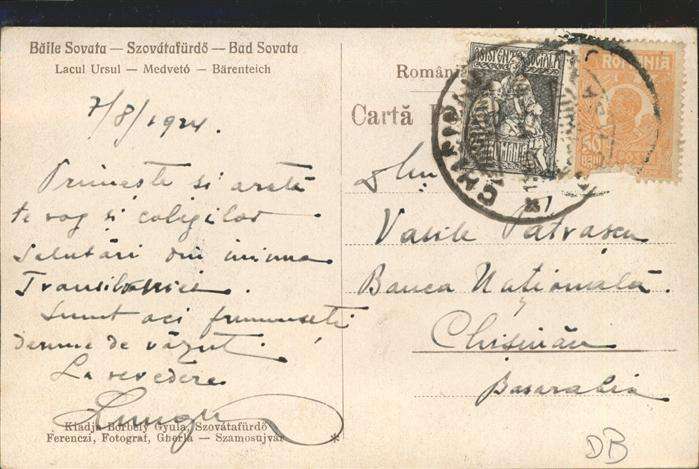 Băile Sovata — Szovátafürdő — Bad Sovata
Lacul Ursul — Medvető — Bärenteich
7/8/1924.
Primește si arată
te rog si colegilor
salutări din inima
Transilvaniei.
Sunt aci frumuseți
demne de văzut.
La revedere
Lungu
Kiadja Borbély Gyula, Szovátafürdő
Ferenczi, Fotograf, Gherla — Szamosujvár
*
Români
Cartă
ASISTENȚA SOCIALA
ROMANIA
50
BANI
POSTA
CHIȘINĂU
Dlui
Vasile Patrascu
Banca Națională.
Chisinău
Basarabia
DB